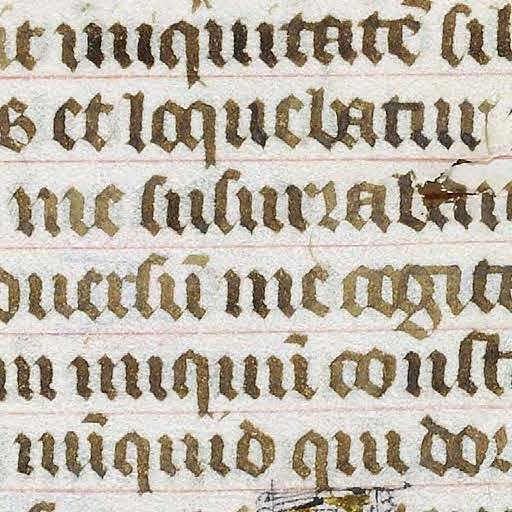 it iniquitatē sib
s et loquebatur
me susurraban
duersū me cogita
m iniquū const
nūquid qui dor